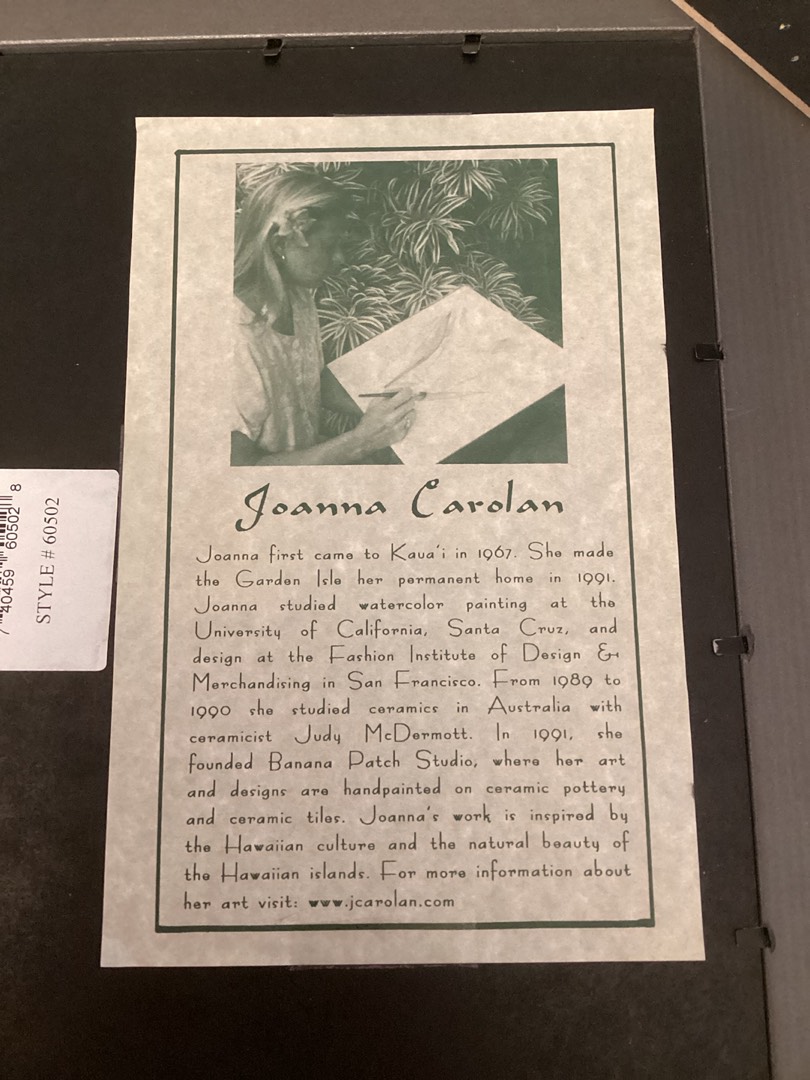 Joanna Carolan
Joanna first came to Kaua'i in 1967. She made
the Garden Isle her permanent home in 1991.
Joanna studied watercolor painting at the
University of California, Santa Cruz, and
design at the Fashion Institute of Design &
Merchandising in San Francisco. From 1989 to
1990 she studied ceramics in Australia with
ceramicist Judy McDermott. In 1991, she
founded Banana Patch Studio, where her art
and designs are handpainted on ceramic pottery
and ceramic tiles. Joanna's work is inspired by
the Hawaiian culture and the natural beauty of
the Hawaiian islands. For more information about
her art visit: www.jcarolan.com
7 40459 60502 8
STYLE # 60502